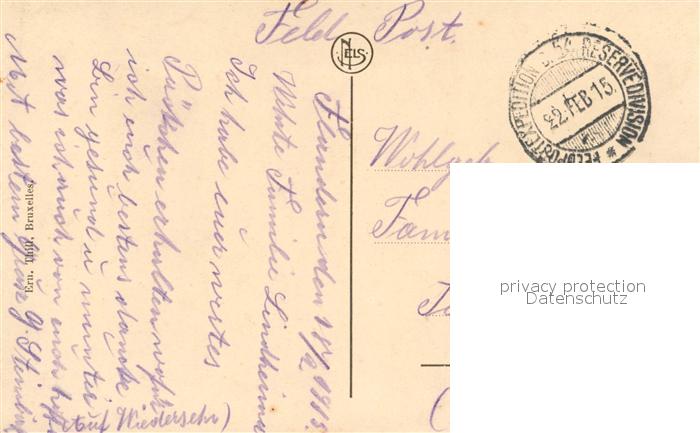 Feld Post.
NELS
FELDPOSTEXPEDITION D. 54. RESERVEDIVISION
22. FEB 15.
Flandern den
Werte Familie Lindheimer
Ich habe euer wertes
Päckchen erhalten wofür
ich euch bestens danke
bin gesund u munter
was ich auch von euch
Mit bestem Gruss G
(Auf Wiedersehn)
Ern. Thill, Bruxelles
Wohlgeb
Fam
privacy protection
Datenschutz